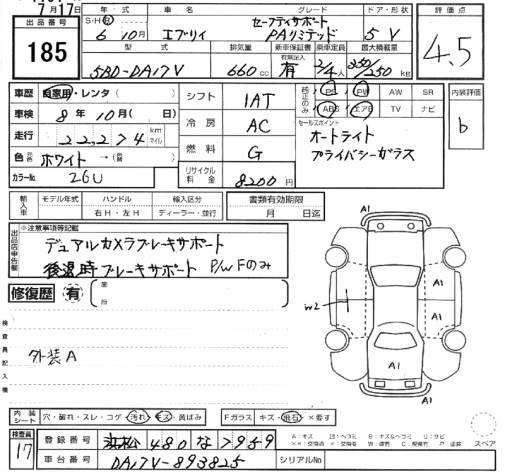 7月17
出品番号 年・式 車名 グレード ドア・形状 評価点
185
S・H・R
6 10月 エブリィ セーフティサポート PAリミテッド 5 V
4.5
型式 排気量 新車保証書 乗車定員 最大積載量
有無記入
5BD-DA17V 660cc 有 2/4人 350/250kg
車歴 自家用・レンタ( ) シフト 1AT 純正のみ PS PW AW SR 内装評価
ABS エアB TV ナビ b
車検 8年10月( ) 冷房 AC セールスポイント
オートライト
プライバシーガラス
走行 22,274 km マイル
燃料 G
色 元色 ホワイト →( )
カラーNo 26U リサイクル料金 8200円
輸入車 モデル年式 ハンドル 輸入区分 書類有効期限
年 右H・左H ディーラー・並行 月 日迄
出品店申告欄 ※注意事項等記載
デュアルカメラブレーキサポート
後退時ブレーキサポート P/W Fのみ
修復歴 有 箇所
検査員記入欄
外装A
A1
A1
W2
A1
A1
A1
内装シート 穴・破れ・スレ・コゲ・汚れ・キズ・黄ばみ Fガラス キズ・飛石・×要す
検査員 17
登録番号 浜松480な7959
A：キズ U：凹ミ B：キズ&ヘコミ S：サビ スペア
車台番号 DA17V-893825 シリアルNo